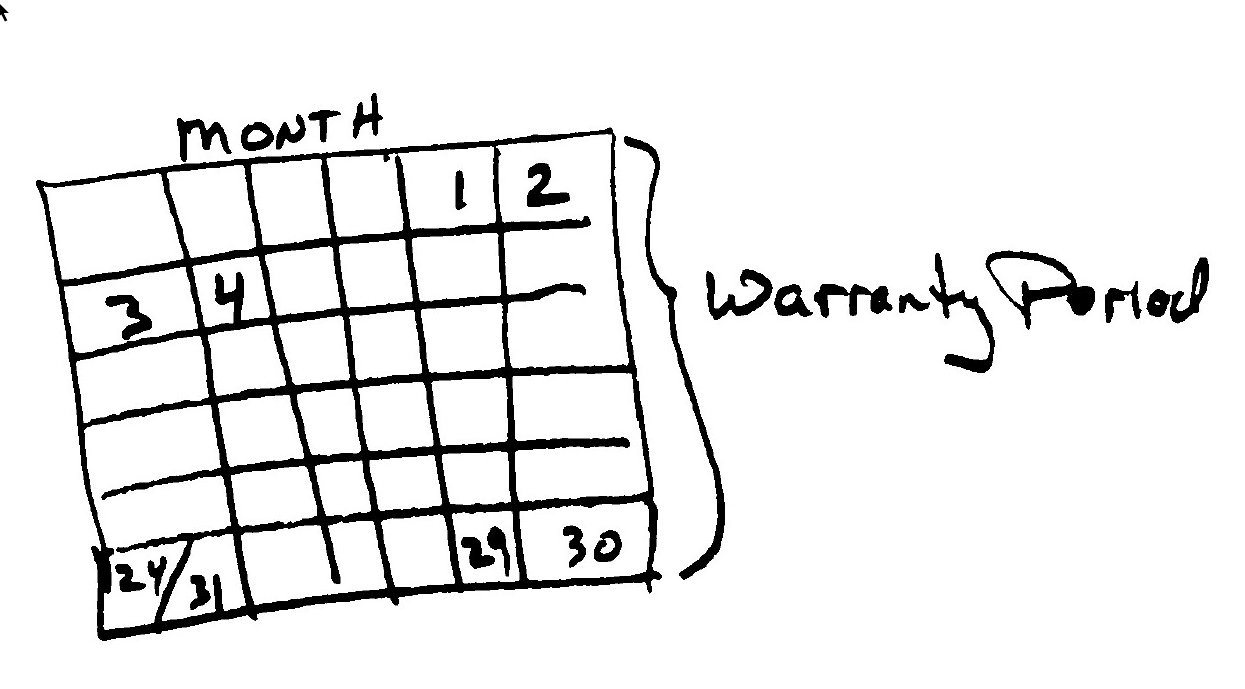 MONTH
1 2
3 4
24/31 29 30
Warranty Period